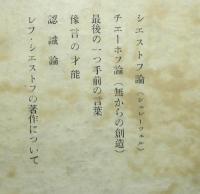 シエストフ論（シュレーツェル）
チエーホフ論（無からの創造）
最後の一つ手前の言葉
像言の才能
認識論
レフ・シエストフの著作について